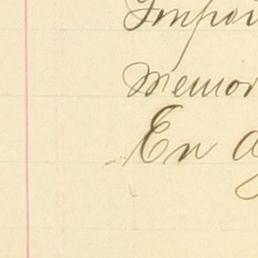 Impor
Memor
En a